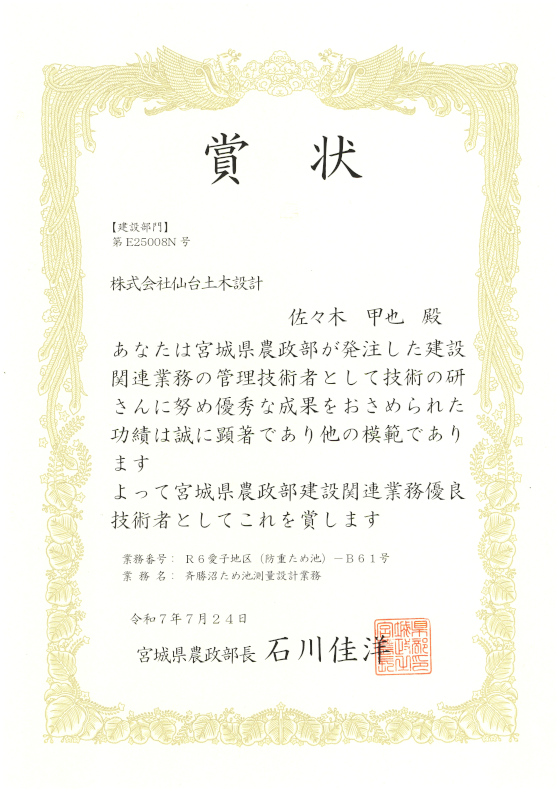 賞状
【建設部門】
第E25008N号
株式会社仙台土木設計
佐々木 甲也 殿
あなたは宮城県農政部が発注した建設
関連業務の管理技術者として技術の研
さんに努め優秀な成果をおさめられた
功績は誠に顕著であり他の模範であり
ます
よって宮城県農政部建設関連業務優良
技術者としてこれを賞します
業務番号： R6愛子地区（防重ため池）－B61号
業 務 名： 斉勝沼ため池測量設計業務
令和7年7月24日
宮城県農政部長 石川佳洋